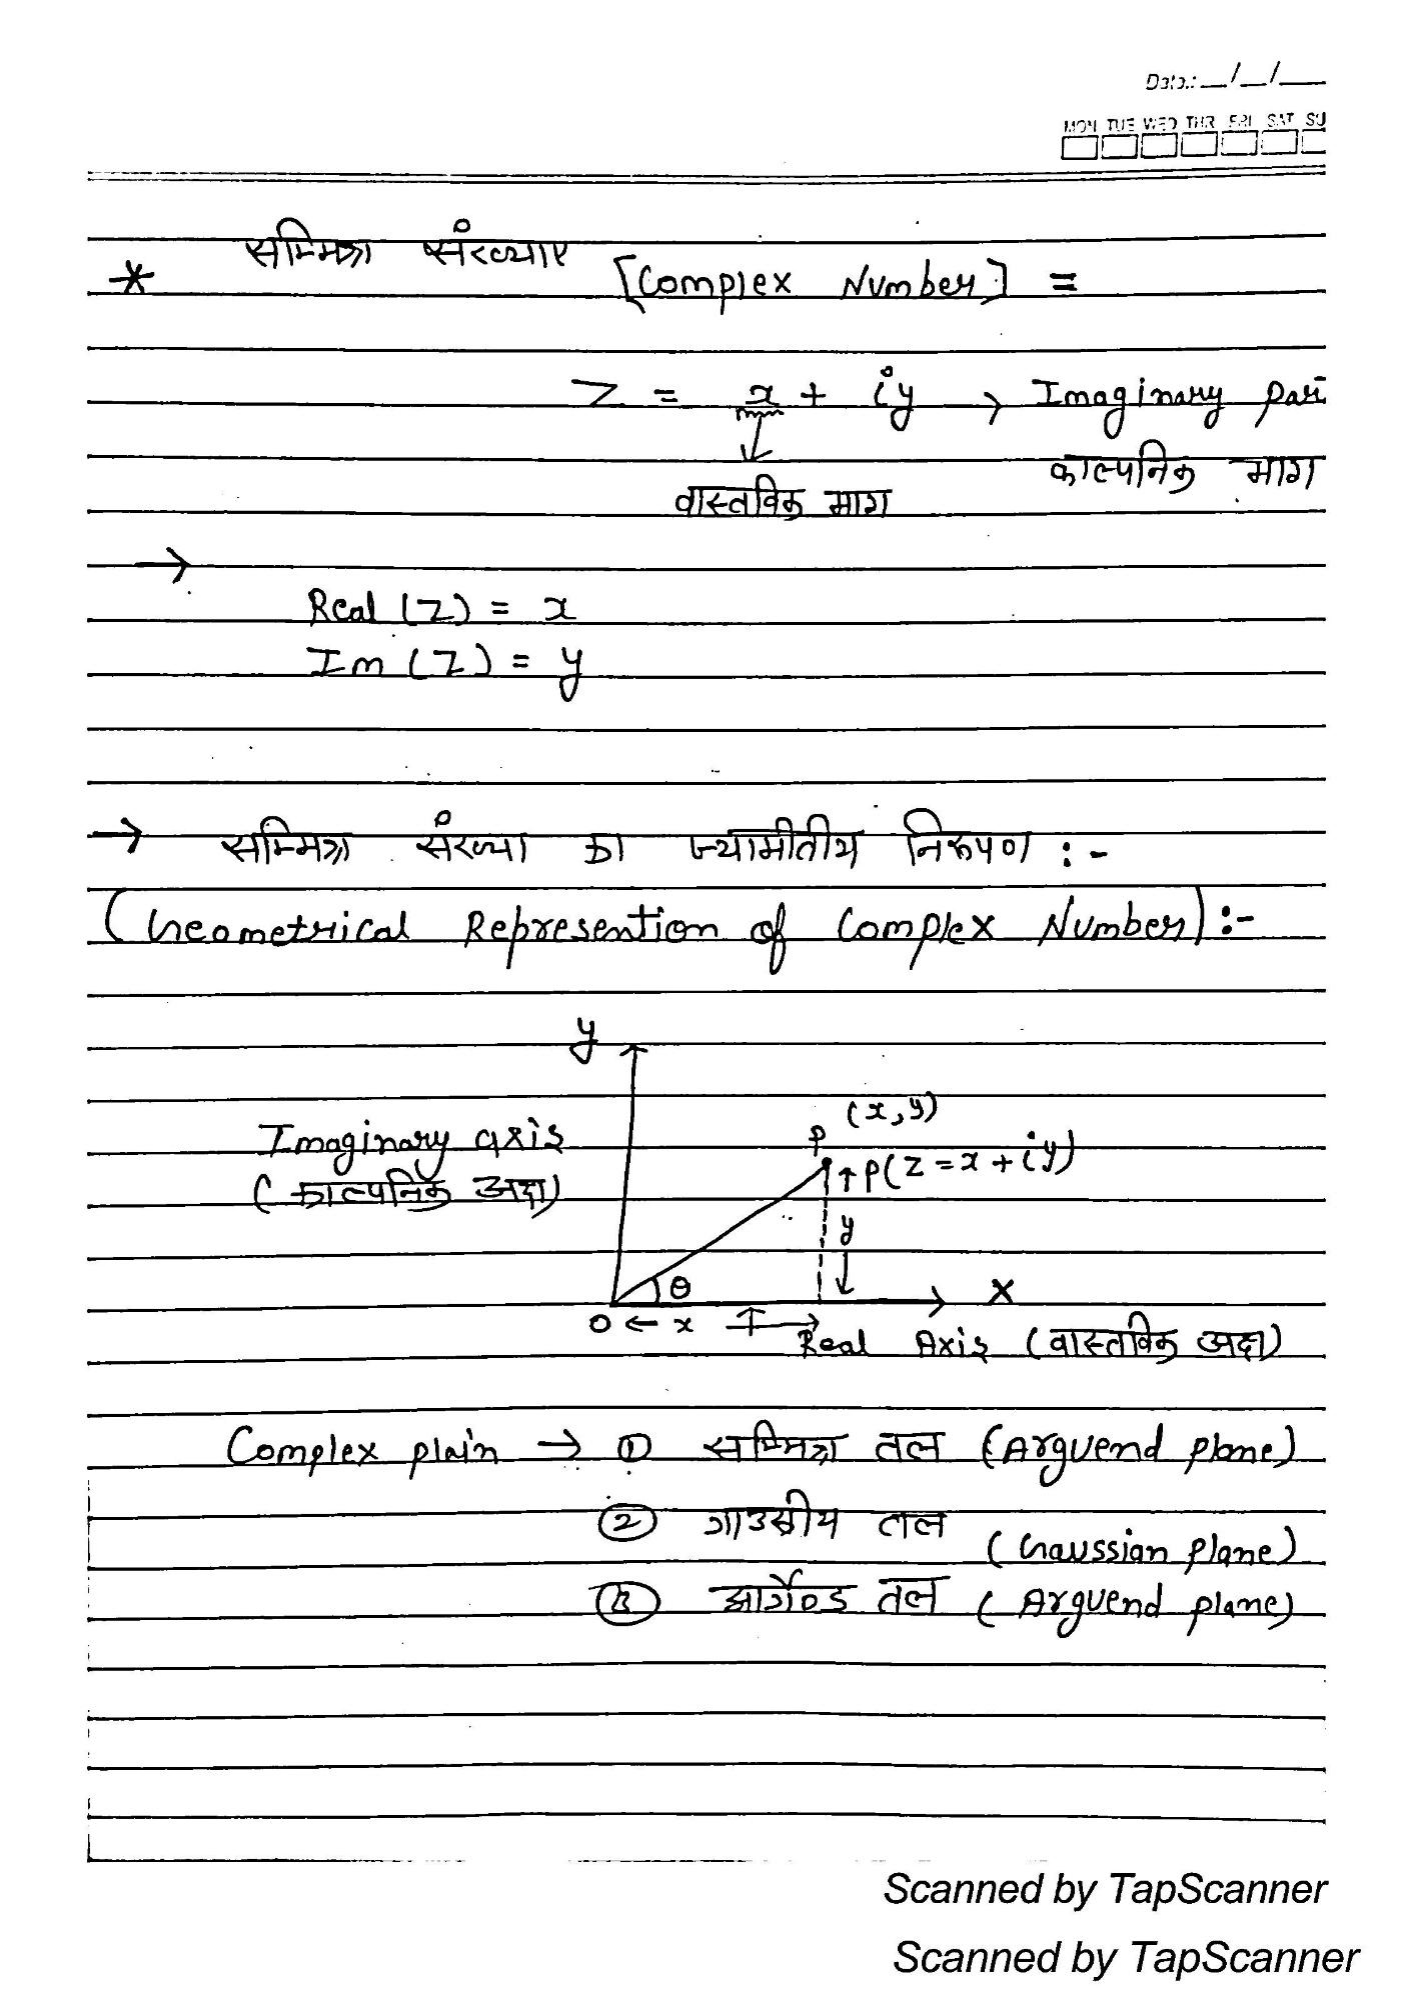 Date.: __/__/___
MON TUE WED THR FRI SAT SU
* सम्मिश्रा संख्याए [Complex Number] =
Z = x + iy → Imaginary par
काल्पनिक भाग
वास्तविक भाग
→
Real (Z) = x
Im (Z) = y
→ सम्मिश्रा संख्या का ज्यामीतीय निरूपण :-
(Geometrical Represention of Complex Number) :-
y
(x, y)
Imaginary axis
P
P(Z = x + iy)
(काल्पनिक अक्ष)
y
θ
X
O ← x →
Real Axis (वास्तविक अक्ष)
Complex plain → ① सम्मिश्रा तल (Arguend plane)
② गाउसीय तल (Gaussian plane)
③ आर्गेण्ड तल (Arguend plane)
Scanned by TapScanner
Scanned by TapScanner